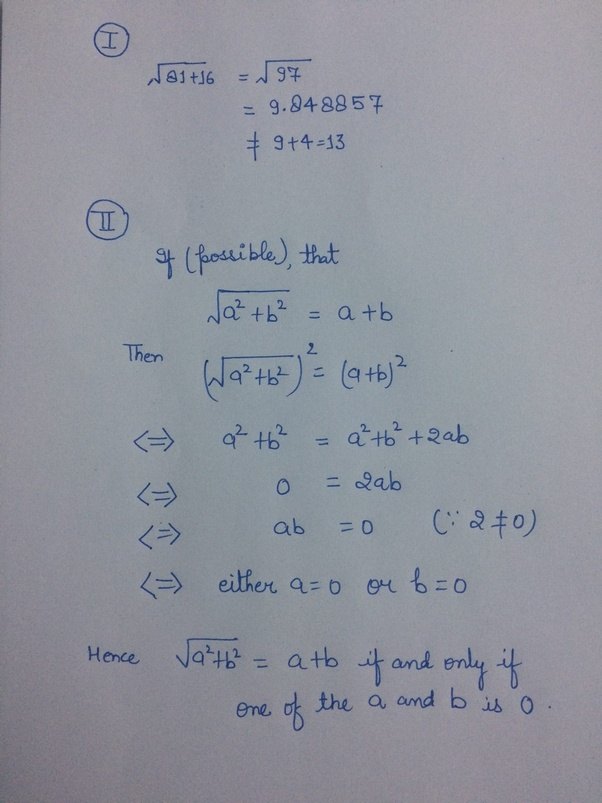 I
√81+16 = √97
= 9.848857
≠ 9+4=13
II
If (possible), that
√a²+b² = a+b
Then (√a²+b²)² = (a+b)²
<=> a²+b² = a²+b²+2ab
<=> 0 = 2ab
<=> ab = 0 (∵ 2≠0)
<=> either a=0 or b=0
Hence √a²+b² = a+b if and only if
one of the a and b is 0.